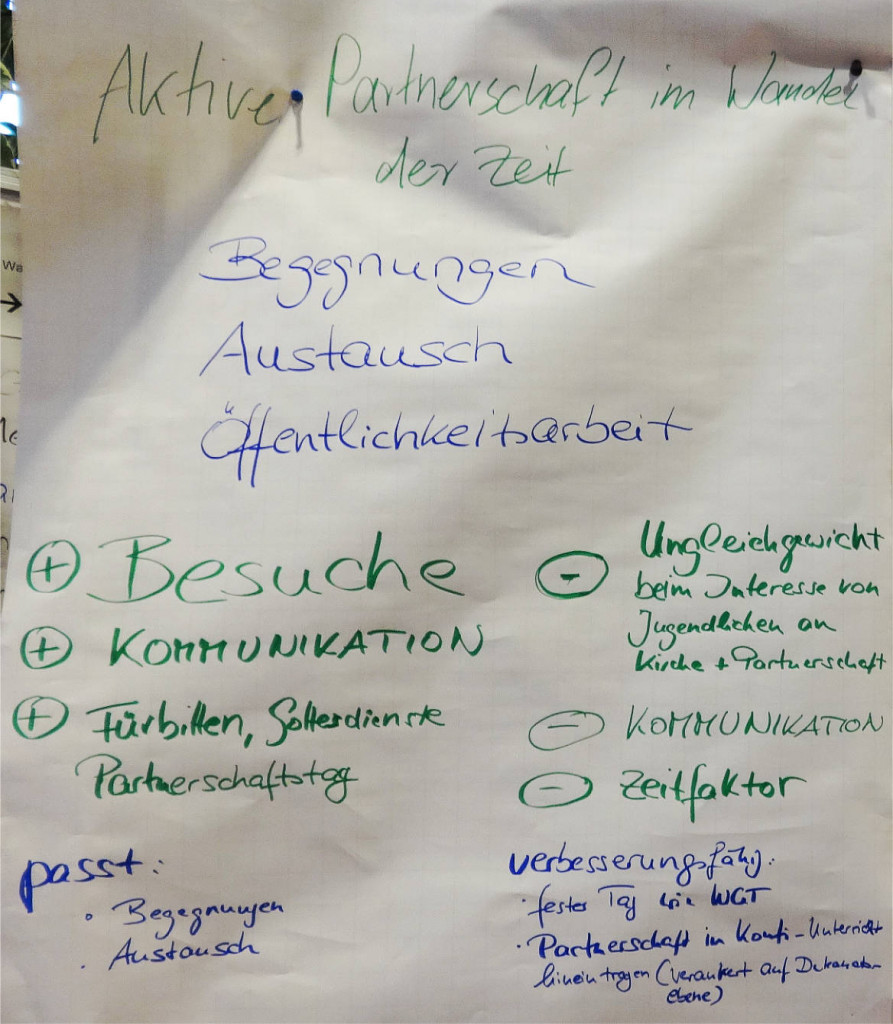 Aktive Partnerschaft im Wandel
der Zeit
Begegnungen
Austausch
Öffentlichkeitsarbeit
⊕ Besuche
⊕ KOMMUNIKATION
⊕ Fürbitten, Gottesdienste
Partnerschaftstag
⊖ Ungleichgewicht
beim Interesse von
Jugendlichen an
Kirche + Partnerschaft
⊖ KOMMUNIKATION
⊖ Zeitfaktor
passt:
• Begegnungen
• Austausch
verbesserungsfähig:
• fester Tag wie WGT
• Partnerschaft in Konfi-Unterricht
hineintragen (verankert auf Dekanats-
ebene)
Wa
→